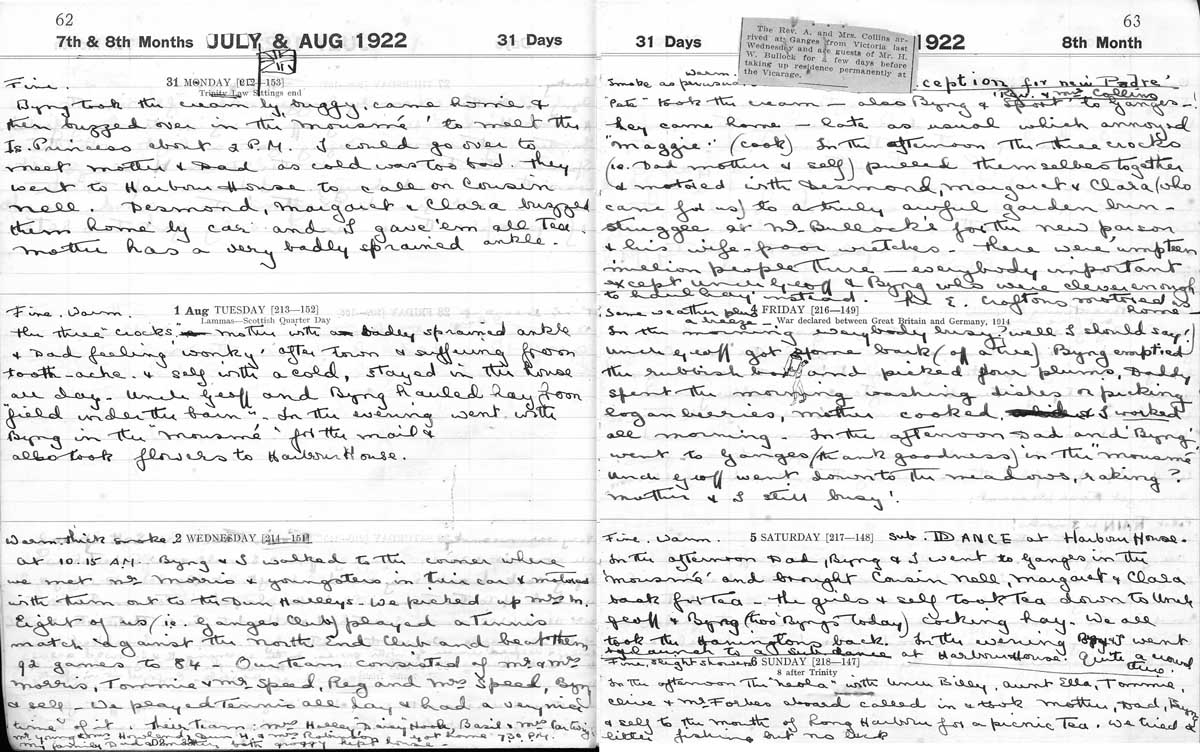 62
7th & 8th Months JULY & AUG 1922 31 Days
Fine. 31 MONDAY [212—153]
Trinity Law Sittings end
Byng took the cream by buggy, came home &
then buzzed over in the 'Mousmé' to meet the
Is. Princess about 2 P.M. I could go over to
meet mother & Dad as cold was too bad. They
went to Harbour House to call on Cousin
Nell. Desmond, Margaret & Clara buzzed
them home by car and I gave 'em all Tea.
Mother has a very badly sprained ankle.
Fine. Warm. 1 Aug TUESDAY [213—152]
Lammas—Scottish Quarter Day
The three "crocks" mother with badly sprained ankle
& Dad feeling 'wonky' after town & suffering from
tooth-ache. & self with a cold, stayed in the house
all day. Uncle Geoff and Byng hauled hay from
"field under the barn". In the evening went with
Byng in the "Mousmé" for the mail &
also took flowers to Harbour House.
Warm. thick smoke. 2 WEDNESDAY [214—151]
At 10.15 A.M. Byng & I walked to the corner where
we met Mrs Morris & youngsters in their car & motored
with them out to the Dun Halleys. We picked up Mrs M.
Eight of us (ie. Ganges Club) played a Tennis
match against the North End Club and beat them
92 games to 84 – Our team consisted of Mr & Mrs
Morris, Tommie & Mr Speed, Reg and Mrs Speed, Byng
& self – We played Tennis all day & had a very nice
time of it – Their Team: Mrs Halley, Basil & Mrs
at home 7.30 P.M.
My family Dad & mother both groggy kept house –
63
31 Days 1922 8th Month
The Rev. A. and Mrs. Collins ar-
rived at Ganges from Victoria last
Wednesday and are guests of Mr. H.
W. Bullock for a few days before
taking up residence permanently at
the Vicarage.
Warm.
Smoke as previous ception for new 'Padré'
'Rev. & Mrs Collins'
"Pate" took the cream – also Byng & 'Sport' to Ganges –
hey came home – late as usual which annoyed
"Maggie" (cook) In the afternoon the three crocks
(ie. Dad mother & self) pulled themselves together
& motored with Desmond, Margaret & Clara (who
came for us) to a truly awful garden bun-
struggle at Mr Bullock's for the new parson
& his wife – poor wretches – There were 'umpteen
million people there – everybody important
except Uncle Geoff & Byng who were clever enough
to haul hay instead. The E. Croftons motored us
home –
Same weather plus 4 FRIDAY [216—149]
a breeze – War declared between Great Britain and Germany, 1914
In the morning everybody busy? well I should say!
Uncle Geoff got some bark (of a tree) Byng emptied
the rubbish box and picked four plums, Daddy
spent the morning washing dishes or picking
loganberries, mother cooked & I worked
all morning. In the afternoon Dad and 'Byng'
went to Ganges (thank goodness) in the "Mousmé"
Uncle Geoff went down to the meadows, raking?
Mother & I still busy!
Fine. Warm. 5 SATURDAY [217—148] Sub. DANCE at Harbour House.
In the afternoon Dad, Byng & I went to Ganges in the
'Mousmé' and brought Cousin Nell, Margaret & Clara
back for Tea – The girls & self took Tea down to Uncle
Geoff & Byng (two Byngs today) cocking hay. We all
took the Haringtons back. In the evening Byng & I went
by launch to a Sub. dance at Harbour House. Quite a crowd
there.
Fine, slight showers 6 SUNDAY [218—147]
8 after Trinity
In the afternoon the "Neola" with Uncle Billy, Aunt Ella, Tommie,
Clive & Mr Forbes aboard called in & took Mother, Dad, Byng
& self to the mouth of Long Harbour for a picnic Tea. We tried a
little fishing but no luck